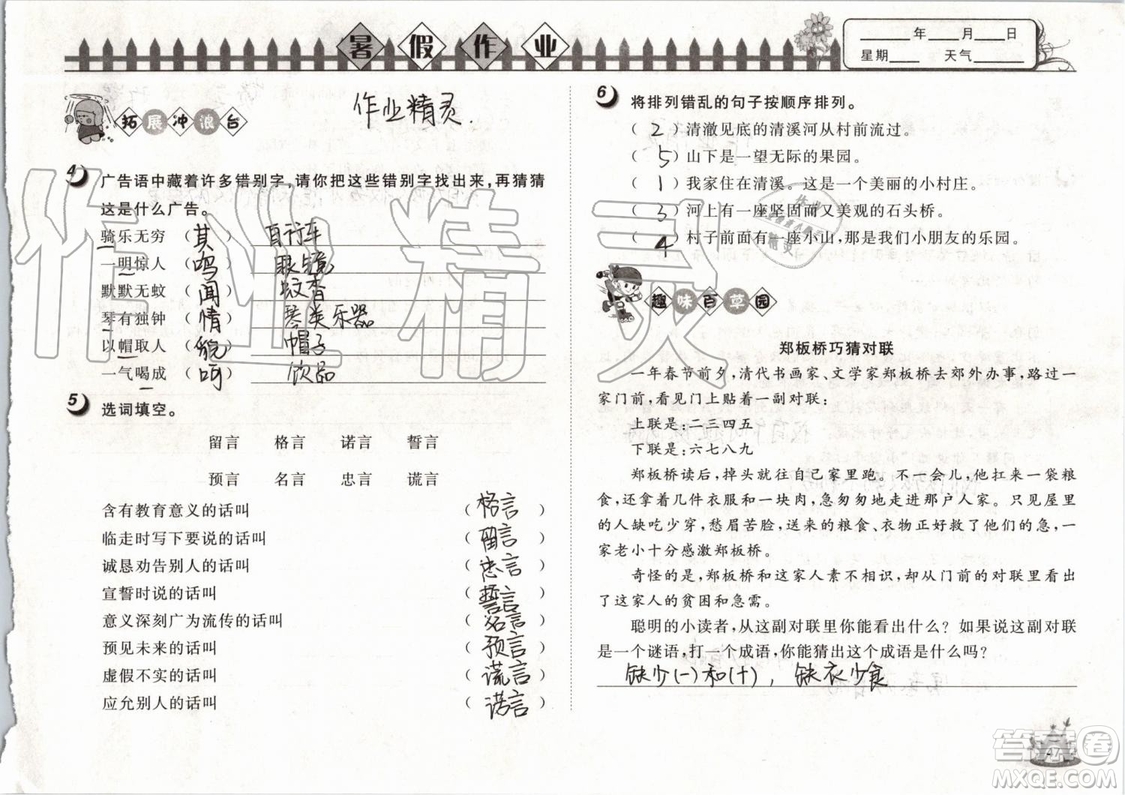 暑假作业
____年____月____日
星期____ 天气____
拓展冲浪台
作业精灵.
4 广告语中藏着许多错别字,请你把这些错别字找出来,再猜猜
这是什么广告。
骑乐无穷 (其) 自行车
一明惊人 (鸣) 眼镜
默默无蚊 (闻) 蚊香
琴有独钟 (情) 琴类乐器
以帽取人 (貌) 帽子
一气喝成 (呵) 饮品
5 选词填空。
留言 格言 诺言 誓言
预言 名言 忠言 谎言
含有教育意义的话叫 (格言)
临走时写下要说的话叫 (留言)
诚恳劝告别人的话叫 (忠言)
宣誓时说的话叫 (誓言)
意义深刻广为流传的话叫 (名言)
预见未来的话叫 (预言)
虚假不实的话叫 (谎言)
应允别人的话叫 (诺言)
6 将排列错乱的句子按顺序排列。
(2)清澈见底的清溪河从村前流过。
(5)山下是一望无际的果园。
(1)我家住在清溪。这是一个美丽的小村庄。
(3)河上有一座坚固而又美观的石头桥。
(4)村子前面有一座小山,那是我们小朋友的乐园。
趣味百草园
郑板桥巧猜对联
一年春节前夕,清代书画家、文学家郑板桥去郊外办事,路过一
家门前,看见门上贴着一副对联:
上联是:二三四五
下联是:六七八九
郑板桥读后,掉头就往自己家里跑。不一会儿,他扛来一袋粮
食,接着几件衣服和一块肉,急匆匆地走进那户人家。只见屋里
的人缺吃少穿,愁眉苦脸,送来的粮食、衣物正好救了他们的急,一
家老小十分感激郑板桥。
奇怪的是,郑板桥和这家人素不相识,却从门前的对联里看出
了这家人的贫困和急需。
聪明的小读者,从这副对联里你能看出什么?如果说这副对联
是一个谜语,打一个成语,你能猜出这个成语是什么吗?
缺少(一)和(十),缺衣少食
47
作业精灵
答案卷
MXQE.COM